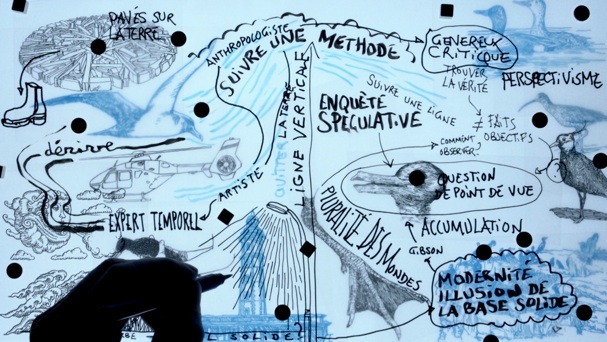 PAVÉS SUR
LA TERRE
ANTHROPOLOGISTE
SUIVRE UNE METHODE
GENEREUX
CRITIQUE
TROUVER
LA VÉRITÉ
PERSPECTIVISME
SUIVRE UNE LIGNE
ENQUÊTE
SPECULATIVE
≠ FAITS
OBJECTIFS
COMMENT
OBSERVER?
QUITTER LA TERRE
LIGNE VERTICALE
dérive
ARTISTE
QUESTION
DE POINT DE VUE
EXPERT TEMPOREL
PLURALITÉ DES MONDES
ACCUMULATION
GIBSON
MODERNITÉ
ILLUSION DE
LA BASE SOLIDE
SOLIDES